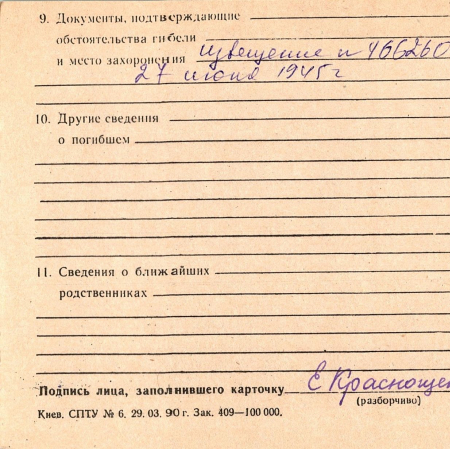 9. Документы, подтверждающие
обстоятельства гибели
и место захоронения извещение п 466260
27 июня 1945 г
10. Другие сведения
о погибшем
11. Сведения о ближайших
родственниках
Подпись лица, заполнившего карточку Е Краснощек
(разборчиво)
Киев. СПТУ № 6. 29. 03. 90 г. Зак. 409—100 000.